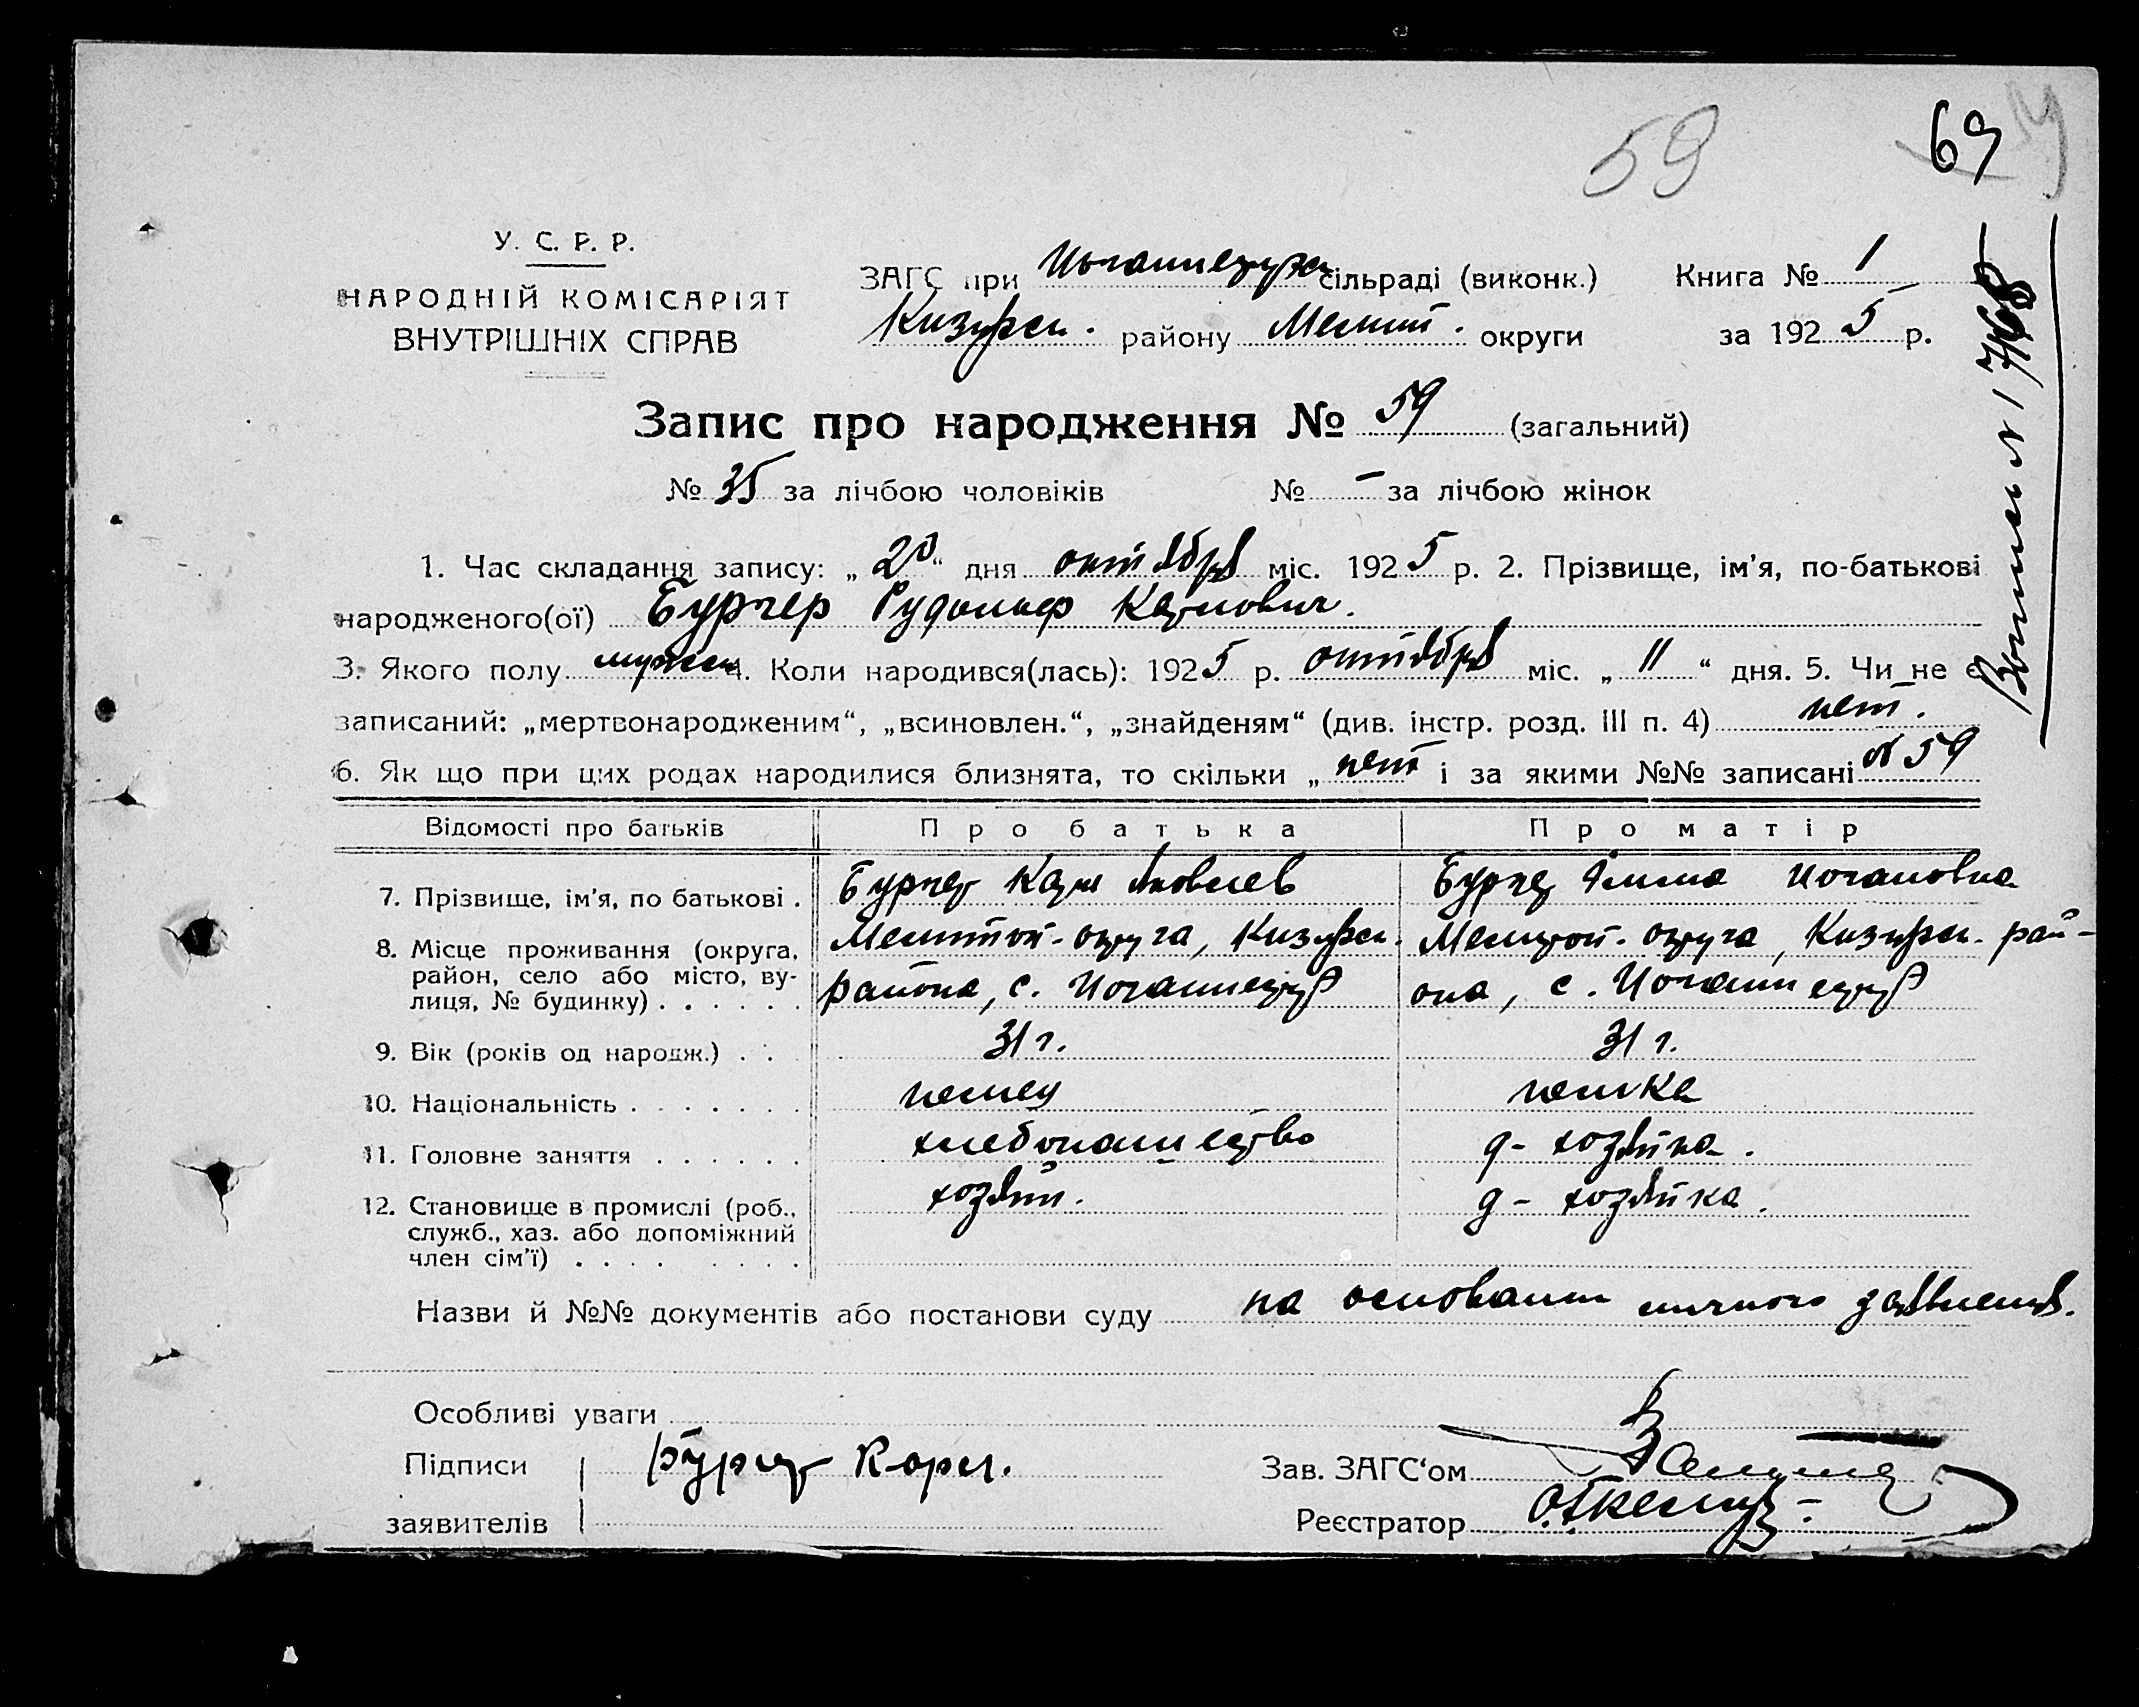 59
69
У. С. Р. Р.
НАРОДНІЙ КОМІСАРІЯТ
ВНУТРІШНІХ СПРАВ
ЗАГС при сільраді (виконк.) Книга № 1
району округи за 1925 р.
Запис про народження № 59 (загальний)
№ 35 за лічбою чоловіків № – за лічбою жінок
1. Час складання запису: „20“ дня октября міс. 1925 р. 2. Прізвище, ім’я, по-батькові
народженого(ої) Бургер Рудольф Карлович.
3. Якого полу мужск 4. Коли народився(лась): 1925 р. октября міс. „ 11 “ дня. 5. Чи не є
записаний: „мертвонародженим“, „всиновлен.“, „знайденям“ (див. інстр. розд. III п. 4) нет.
6. Як що при цих родах народилися близнята, то скільки „ нет і за якими №№ записані № 59
Відомості про батьків Про батька Про матір
7. Прізвище, ім’я, по батькові . Бургер Карл Яковлев Бургер Иогановна
8. Місце проживання (округа, Мелитоп. округа, Мелитоп. округа, рай-
район, село або місто, ву- района, с. она, с.
лиця, № будинку) . . . . . .
9. Вік (років од народж.) . . 31 г. 31 г.
10. Національність . . . . . . . немец немка
11. Головне заняття . . . . . . хлебопашество д-хозяйка.
12. Становище в промислі (роб., хозяин. д-хозяйка.
служб., хаз. або допоміжний
член сім’ї) . . . . . . . .
Назви й №№ документів або постанови суду на основании личного заявления.
Особливі уваги
Підписи Бургер Карл. Зав. ЗАГС‘ом
заявителів Реєстратор